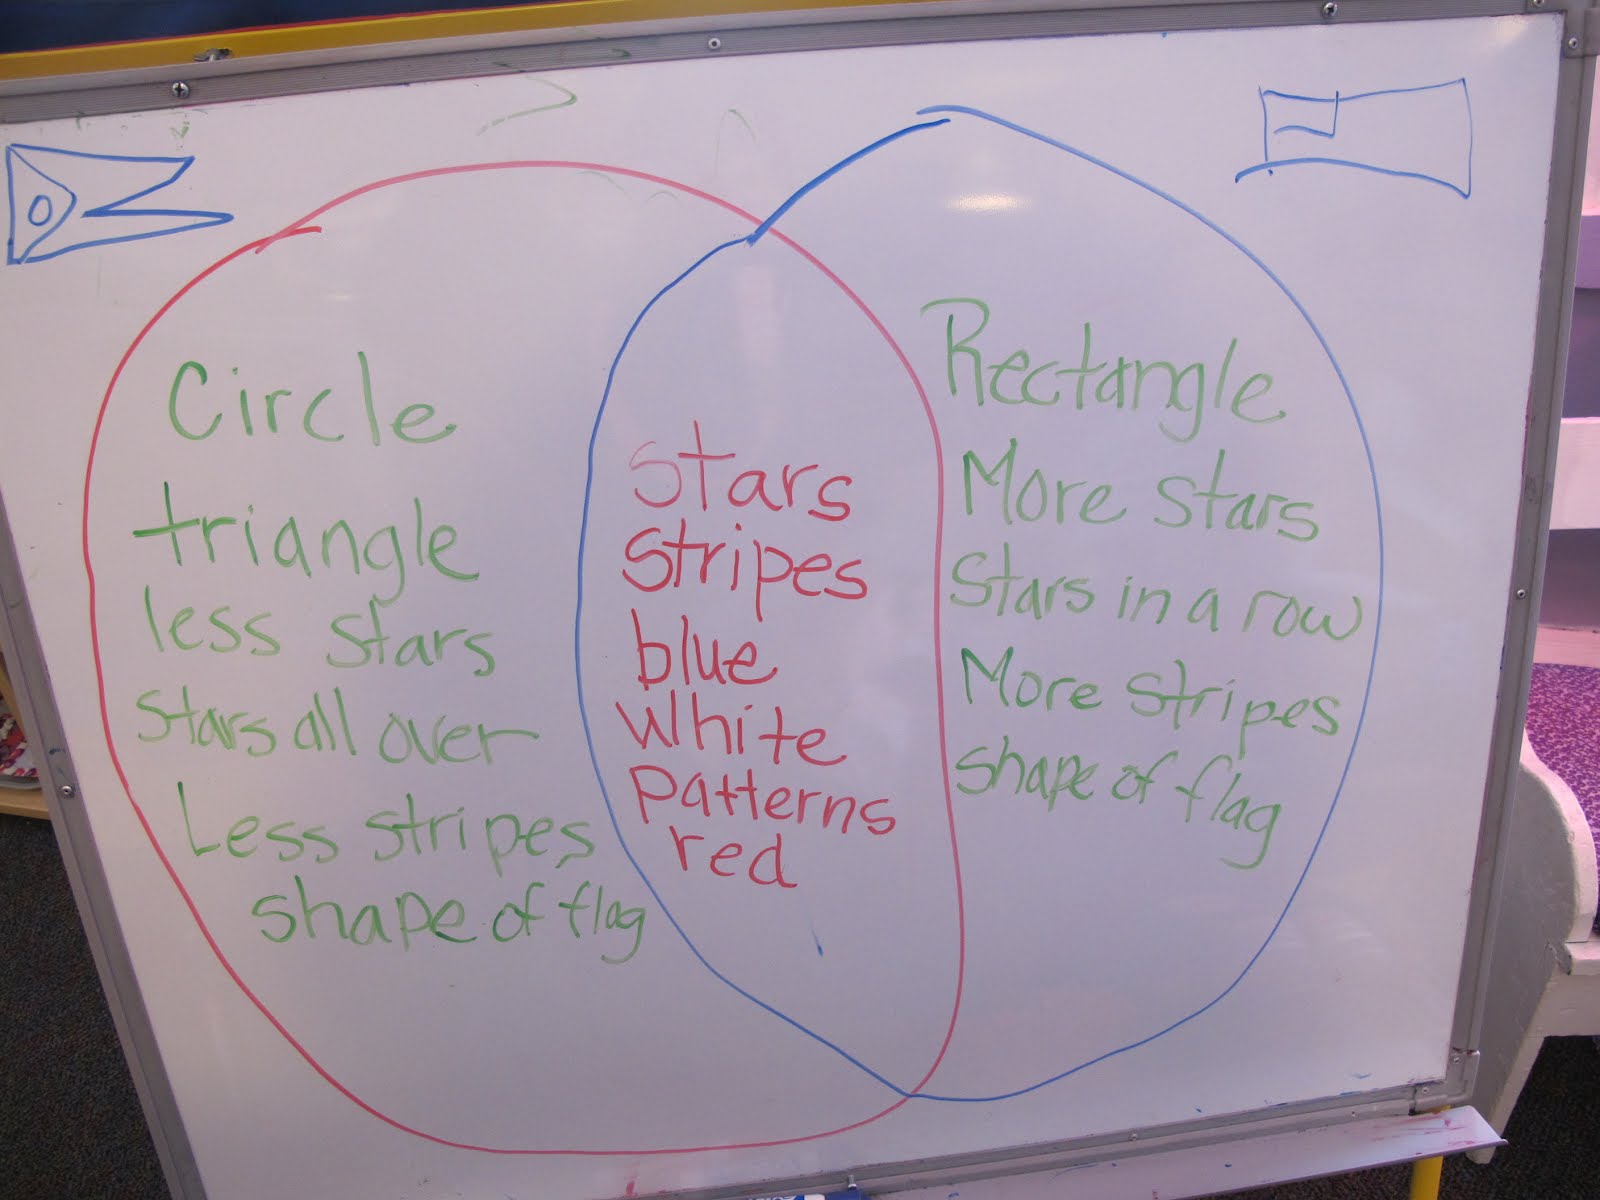 Circle
triangle
less stars
stars all over
Less stripes
shape of flag
stars
stripes
blue
white
patterns
red
Rectangle
More stars
Stars in a row
More stripes
shape of flag